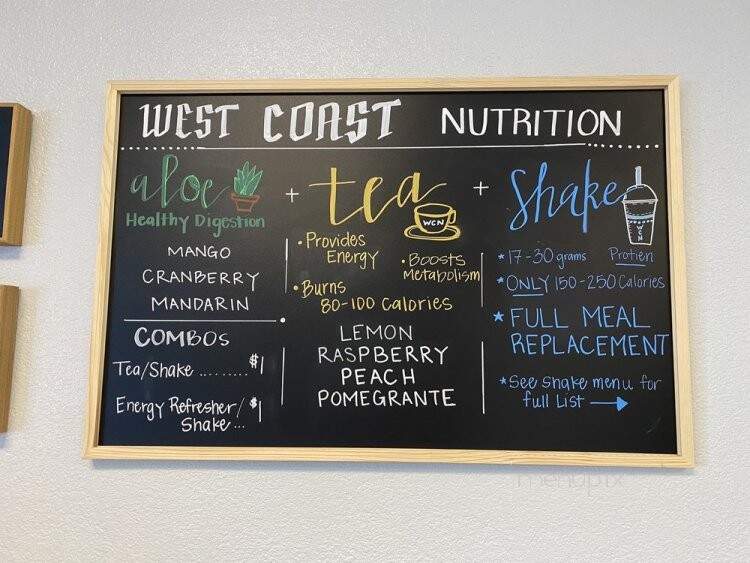 WEST COAST NUTRITION
aloe + tea + Shake
Healthy Digestion
MANGO
CRANBERRY
MANDARIN
COMBOS
Tea/Shake ......... $1
Energy Refresher/
Shake... $1
WCN
• Provides
Energy
• Boosts
Metabolism
• Burns
80-100 Calories
LEMON
RASPBERRY
PEACH
POMEGRANTE
WCN
* 17-30 grams Protien
* ONLY 150-250 Calories
* FULL MEAL
REPLACEMENT
* See Shake menu for
full List →
menupix